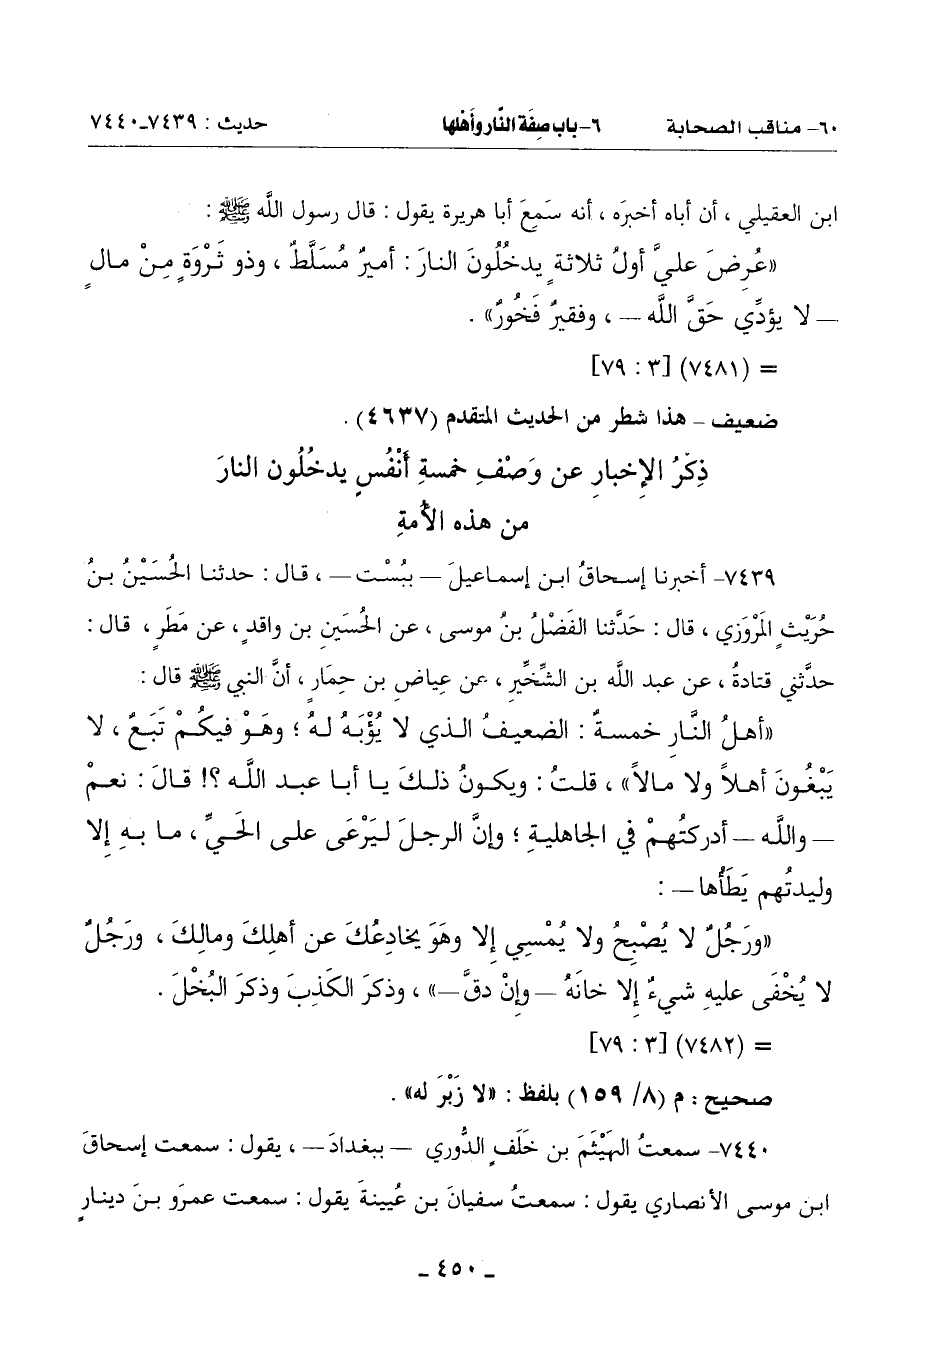 ٦٠- مناقب الصحابة ٦- باب صفة النَّار وأَهْلها حديث : ٧٤٣٩-٧٤٤٠
ابن العقيلي ، أن أباه أخبرَه ، أنه سَمِعَ أبا هريرة يقول : قال رسول اللَّه ﷺ :
«عُرِضَ عليَّ أولُ ثلاثةٍ يدخُلُونَ النارَ : أميرٌ مُسَلَّطٌ ، وذو ثَرْوَةٍ مِنْ مالٍ
– لا يؤدِّي حَقَّ اللَّه – ، وفقيرٌ فَخُورٌ» .
= (٧٤٨١) [٣ : ٧٩]
ضعيف - هذا شطر من الحديث المتقدم (٤٦٣٧) .
ذِكْرُ الإخبارِ عن وَصْفِ خمسةِ أَنْفُسٍ يدخُلُون النارَ
من هذه الأُمةِ
٧٤٣٩- أخبرنا إسحاقُ ابن إسماعيلَ – ببُسْت – ، قال : حدثنا الحُسَيْنُ بنُ
حُرَيْثٍ المَرْوَزي ، قال : حَدَّثنا الفَضْلُ بنُ موسى ، عن الحُسَينِ بن واقدٍ ، عن مَطَرٍ ، قال :
حدَّثني قتادةُ ، عن عبد اللَّه بن الشِّخِّير ، عن عِياضِ بن حِمَارٍ ، أنَّ النبي ﷺ قال :
«أهلُ النَّارِ خمسةٌ : الضعيفُ الذي لا يُؤْبَهُ لهُ ؛ وهَوْ فيكُمْ تَبَعٌ ، لا
يَبْغُونَ أهلاً ولا مالاً» ، قلتُ : ويكونُ ذلكَ يا أبا عبد اللَّه ؟! قالَ : نعمْ
– واللَّه – أدركتُهمْ في الجاهليةِ ؛ وإنَّ الرجلَ ليَرْعَى على الحَيِّ ، ما بهِ إلا
وليدتُهم يَطَأُها – :
«ورَجُلٌ لا يُصْبِحُ ولا يُمْسِي إلا وهَوَ يخادِعُكَ عن أهلِكَ ومالِكَ ، ورَجُلٌ
لا يُخْفَى عليهِ شيءٌ إلا خانَهُ – وإنْ دقَّ –» ، وذكرَ الكَذِبَ وذكرَ البُخْلَ .
= (٧٤٨٢) [٣ : ٧٩]
صحيح : م (٨/ ١٥٩) بلفظ : «لا زَبْرَ له» .
٧٤٤٠- سمعتُ الهَيْثَمَ بن خَلَفٍ الدُّوري – ببغدادَ – ، يقول : سمعت إسحاقَ
ابن موسى الأنصاري يقول : سمعتُ سفيانَ بن عُيينةَ يقول : سمعت عمرَو بنَ دينارٍ
- ٤٥٠ -